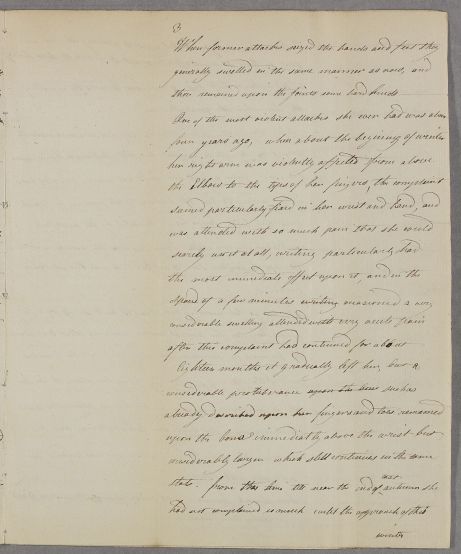 3
When former attacks seized the hands and feet they
generally swelled in the same manner as now, and
there remained upon the joints some hard knots
One of the most violent attacks she ever had was about
four years ago, when about the beginning of winter
her right arm was violently affected from above
the Elbow to the tips of her fingers, the complaint
seemed particularly fixed in her wrist and hand, and
was attended with so much pain that she could
scarcely use it at all, writing particularly had
the most immediate effect upon it, and in the
space of a few minutes writing occasioned a very
considerable swelling attended with very acute pain
after this complaint had continued for about
Eighteen months it gradually left her, but a
considerable protuberance upon the bone such as
already described upon her fingers and toes remained
upon the bone immediately above the wrist but
considerably larger which still continues in the same
state. from this time till near the end of last autumn she
had not complained so much until the approach of this
winter